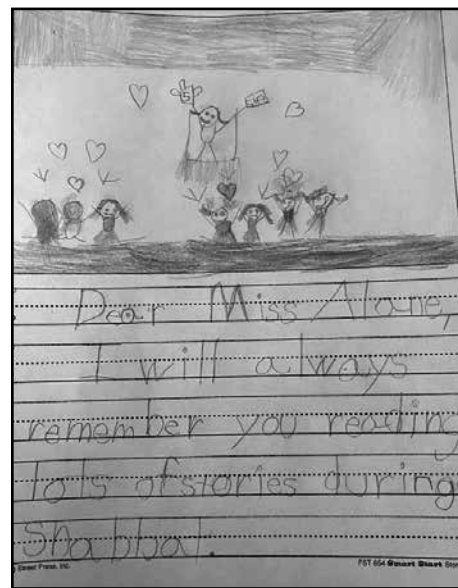 Dear Miss Alone,
I will always
remember you reading
lots of stories during
Shabbat.
Street Press, Inc.
FST 654 Smart Start Stor